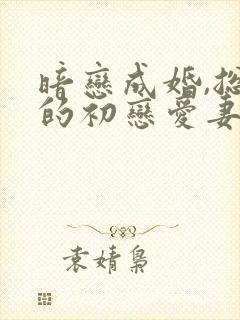 暗戀成婚,
的初戀愛妻
袁婧梟